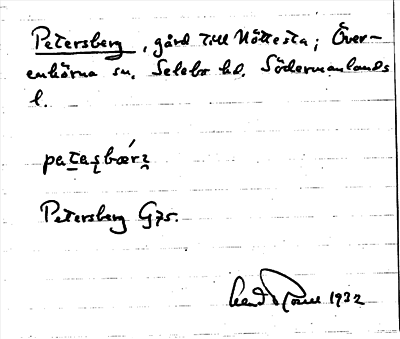 Petersberg, gård till Nöttesta; Över-
enhörna sn. Selebo hd. Södermanlands
l.
Petersberg G75.
1932